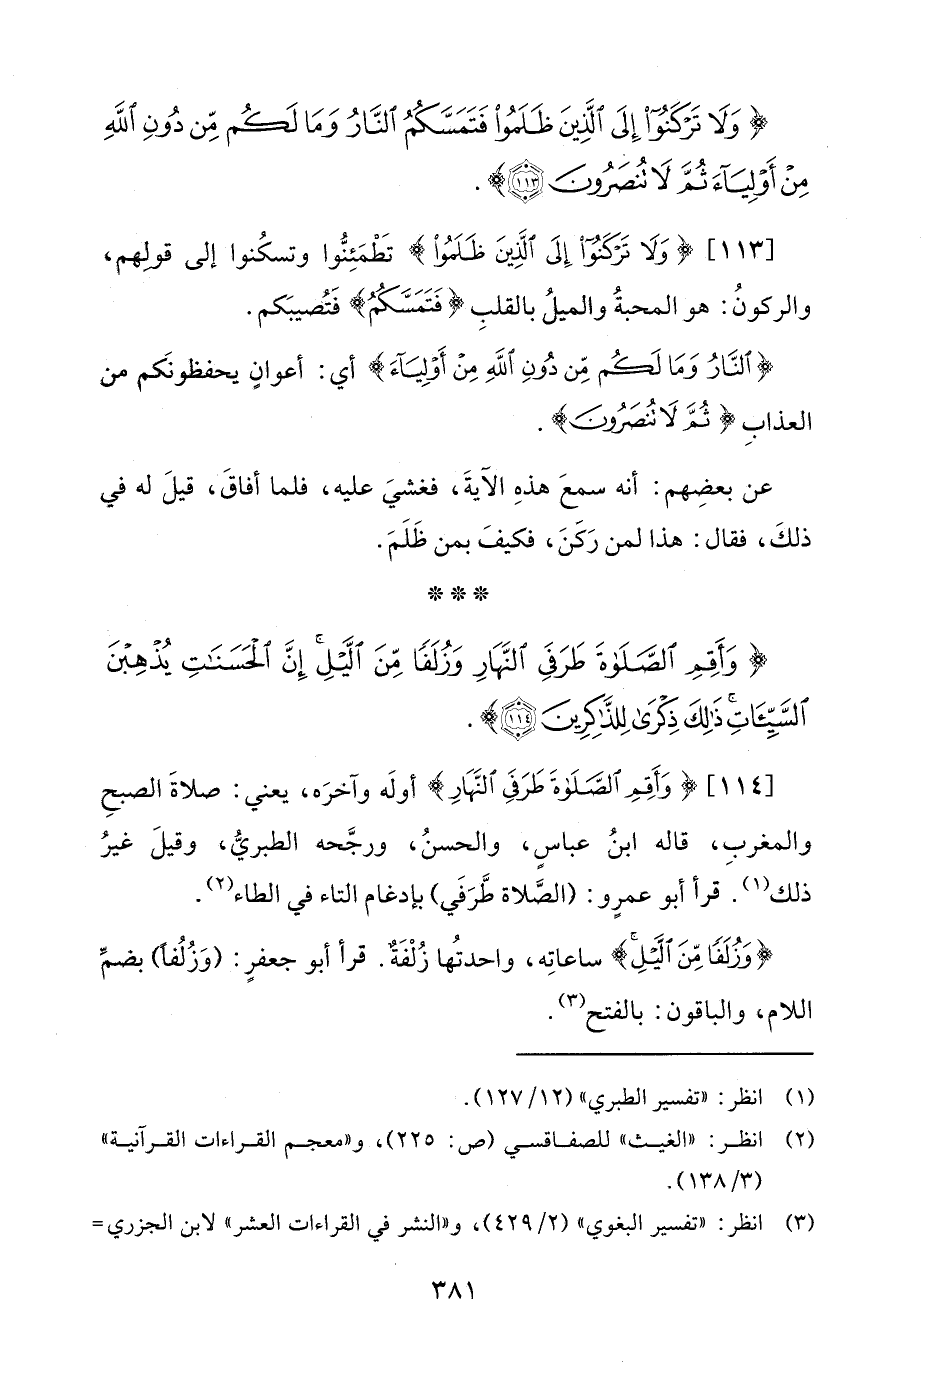 ﴿ وَلَا تَرْكَنُوٓا۟ إِلَى ٱلَّذِينَ ظَلَمُوا۟ فَتَمَسَّكُمُ ٱلنَّارُ وَمَا لَكُم مِّن دُونِ ٱللَّهِ
مِنْ أَوْلِيَآءَ ثُمَّ لَا تُنصَرُونَ ﴿١١٣﴾ ﴾ .
[١١٣] ﴿ وَلَا تَرْكَنُوٓا۟ إِلَى ٱلَّذِينَ ظَلَمُوا۟ ﴾ تَطْمَئِنُّوا وتسكُنوا إلى قولِهم،
والركونُ: هو المحبةُ والميلُ بالقلبِ ﴿ فَتَمَسَّكُمُ ﴾ فَتُصيبَكم.
﴿ ٱلنَّارُ وَمَا لَكُم مِّن دُونِ ٱللَّهِ مِنْ أَوْلِيَآءَ ﴾ أي: أعوانٍ يحفظونَكم من
العذابِ ﴿ ثُمَّ لَا تُنصَرُونَ ﴾ .
عن بعضِهم: أنه سمعَ هذهِ الآيةَ، فغشيَ عليه، فلما أفاقَ، قيلَ له في
ذلكَ، فقال: هذا لمن رَكَنَ، فكيفَ بمن ظَلَمَ.
* * *
﴿ وَأَقِمِ ٱلصَّلَوٰةَ طَرَفَىِ ٱلنَّهَارِ وَزُلَفًا مِّنَ ٱلَّيْلِ ۚ إِنَّ ٱلْحَسَنَـٰتِ يُذْهِبْنَ
ٱلسَّيِّـَٔاتِ ۚ ذَٰلِكَ ذِكْرَىٰ لِلذَّٰكِرِينَ ﴿١١٤﴾ ﴾ .
[١١٤] ﴿ وَأَقِمِ ٱلصَّلَوٰةَ طَرَفَىِ ٱلنَّهَارِ ﴾ أولَه وآخرَه، يعني: صلاةَ الصبحِ
والمغربِ، قاله ابنُ عباسٍ، والحسنُ، ورجَّحه الطبريُّ، وقيلَ غيرُ
ذلك(١). قرأ أبو عمرٍو: (الصَّلاة طَّرَفَي) بإدغام التاء في الطاء(٢).
﴿ وَزُلَفًا مِّنَ ٱلَّيْلِ ۚ ﴾ ساعاتِه، واحدتُها زُلْفَةٌ. قرأ أبو جعفرٍ: (وَزُلُفاً) بضمِّ
اللام، والباقون: بالفتح(٣).
(١) انظر: «تفسير الطبري» (١٢/ ١٢٧).
(٢) انظر: «الغيث» للصفاقسي (ص: ٢٢٥)، و«معجم القراءات القرآنية»
(٣/ ١٣٨).
(٣) انظر: «تفسير البغوي» (٢/ ٤٢٩)، و«النشر في القراءات العشر» لابن الجزري=
٣٨١